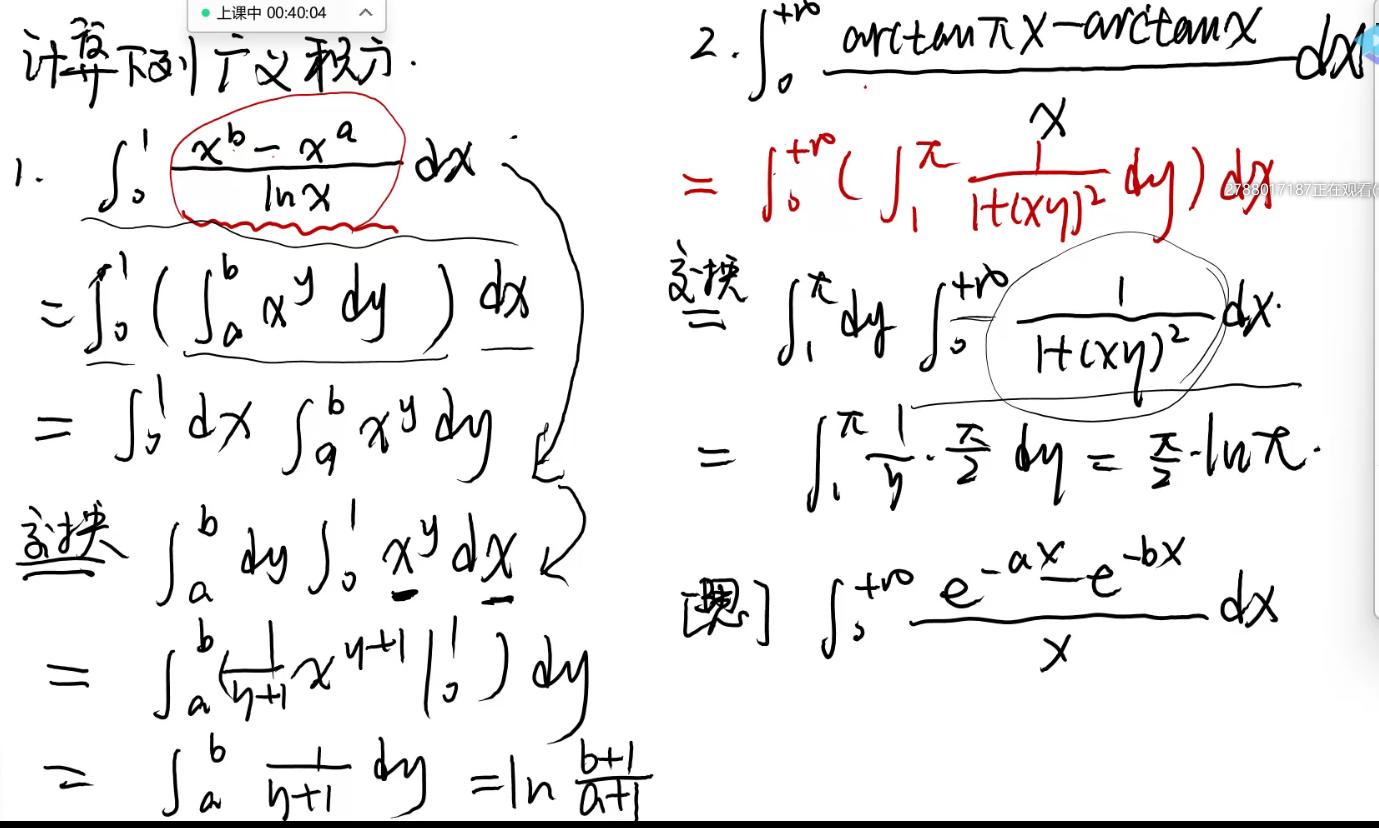 上课中 00:40:04
计算下列广义积分.
1. ∫₀¹ (x^b − x^a)/(ln x) dx
= ∫₀¹ ( ∫ₐᵇ x^y dy ) dx
= ∫₀¹ dx ∫ₐᵇ x^y dy
交换 ∫ₐᵇ dy ∫₀¹ x^y dx
= ∫ₐᵇ ( 1/(y+1) x^(y+1) |₀¹ ) dy
= ∫ₐᵇ 1/(y+1) dy = ln (b+1)/(a+1)
2. ∫₀^(+∞) (arctan πx − arctan x)/x dx
= ∫₀^(+∞) ( ∫₁^π 1/(1+(xy)²) dy ) dx
2788017187正在观看
交换 = ∫₁^π dy ∫₀^(+∞) 1/(1+(xy)²) dx.
= ∫₁^π 1/y · π/2 dy = π/2 · ln π.
∫₀^(+∞) (e^(−ax) − e^(−bx))/x dx